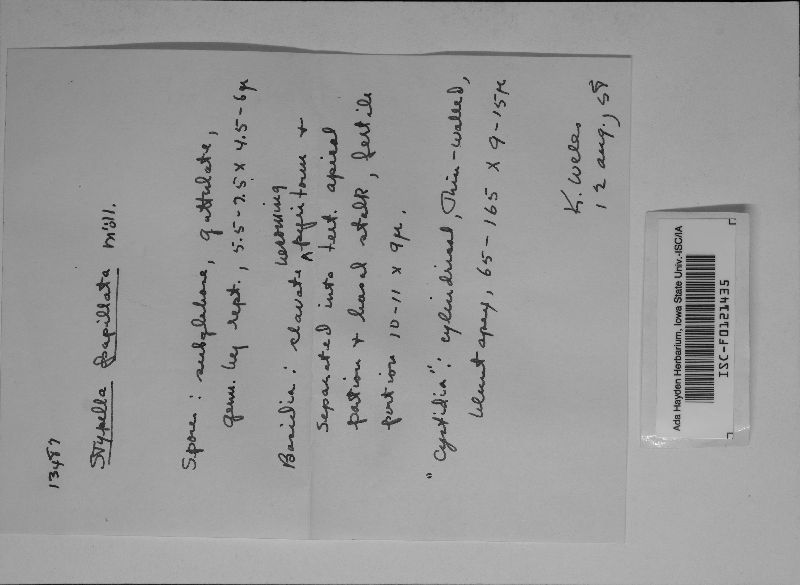 13487
Stypella papillata Möll.
Spores: subglobose, guttulate,
germ. by rept., 5.5-7.5 x 4.5-6μ
Basidia: clavate becoming pyriform &
separated into fert. apical
portion & basal stalk, fertile
portion 10-11 x 9μ.
"Cystidia": cylindrical, thin-walled,
blunt apex, 65-165 x 9-15μ
K. Wells
12 Aug., 58
Ada Hayden Herbarium, Iowa State Univ.-ISC/IA
ISC-F0121435